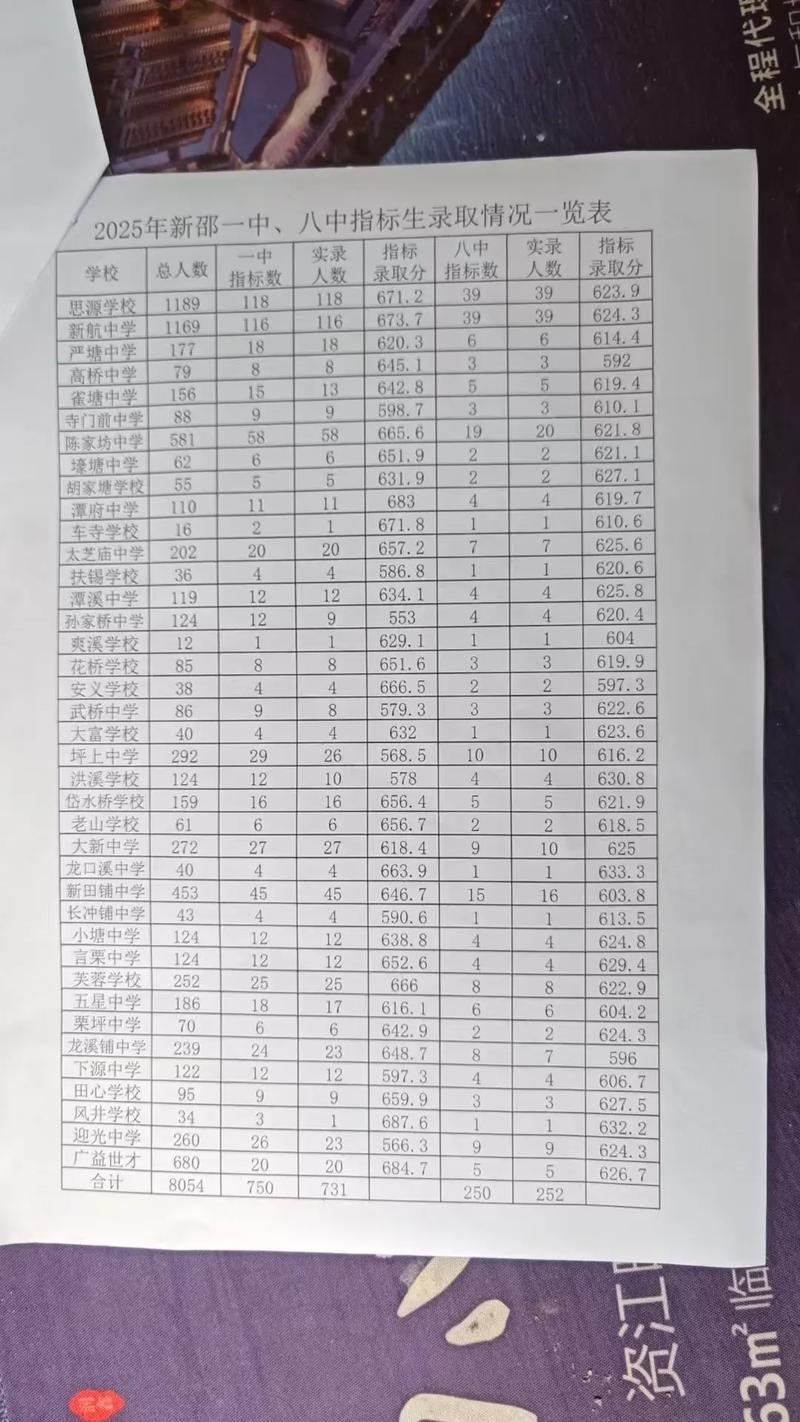 全程代理
2025年新邵一中、八中指标生录取情况一览表
学校 总人数 一中指标数 实录人数 指标录取分 八中指标数 实录人数 指标录取分
思源学校 1189 118 118 671.2 39 39 623.9
新航中学 1169 116 116 673.7 39 39 624.3
严塘中学 177 18 18 620.3 6 6 614.4
高桥中学 79 8 8 645.1 3 3 592
雀塘中学 156 15 13 642.8 5 5 619.4
寺门前中学 88 9 9 598.7 3 3 610.1
陈家坊中学 581 58 58 665.6 19 20 621.8
壕塘中学 62 6 6 651.9 2 2 621.1
胡家塘学校 55 5 5 631.9 2 2 627.1
潭府中学 110 11 11 683 4 4 619.7
车寺学校 16 2 1 671.8 1 1 610.6
太芝庙中学 202 20 20 657.2 7 7 625.6
扶锡学校 36 4 4 586.8 1 1 620.6
潭溪中学 119 12 12 634.1 4 4 625.8
孙家桥中学 124 12 9 553 4 4 620.4
爽溪学校 12 1 1 629.1 1 1 604
花桥学校 85 8 8 651.6 3 3 619.9
安义学校 38 4 4 666.5 2 2 597.3
武桥中学 86 9 8 579.3 3 3 622.6
大富学校 40 4 4 632 1 1 623.6
坪上中学 292 29 26 568.5 10 10 616.2
洪溪学校 124 12 10 578 4 4 630.8
岱水桥学校 159 16 16 656.4 5 5 621.9
老山学校 61 6 6 656.7 2 2 618.5
大新中学 272 27 27 618.4 9 10 625
龙口溪中学 40 4 4 663.9 1 1 633.3
新田铺中学 453 45 45 646.7 15 16 603.8
长冲铺中学 43 4 4 590.6 1 1 613.5
小塘中学 124 12 12 638.8 4 4 624.8
言栗中学 124 12 12 652.6 4 4 629.4
芙蓉学校 252 25 25 666 8 8 622.9
五星中学 186 18 17 616.1 6 6 604.2
栗坪中学 70 6 6 642.9 2 2 624.3
龙溪铺中学 239 24 23 648.7 8 7 596
下源中学 122 12 12 597.3 4 4 606.7
田心学校 95 9 9 659.9 3 3 627.5
风井学校 34 3 1 687.6 1 1 632.2
迎光中学 260 26 23 566.3 9 9 624.3
广益世才 680 20 20 684.7 5 5 626.7
合计 8054 750 731 250 252
资江
63m² 临